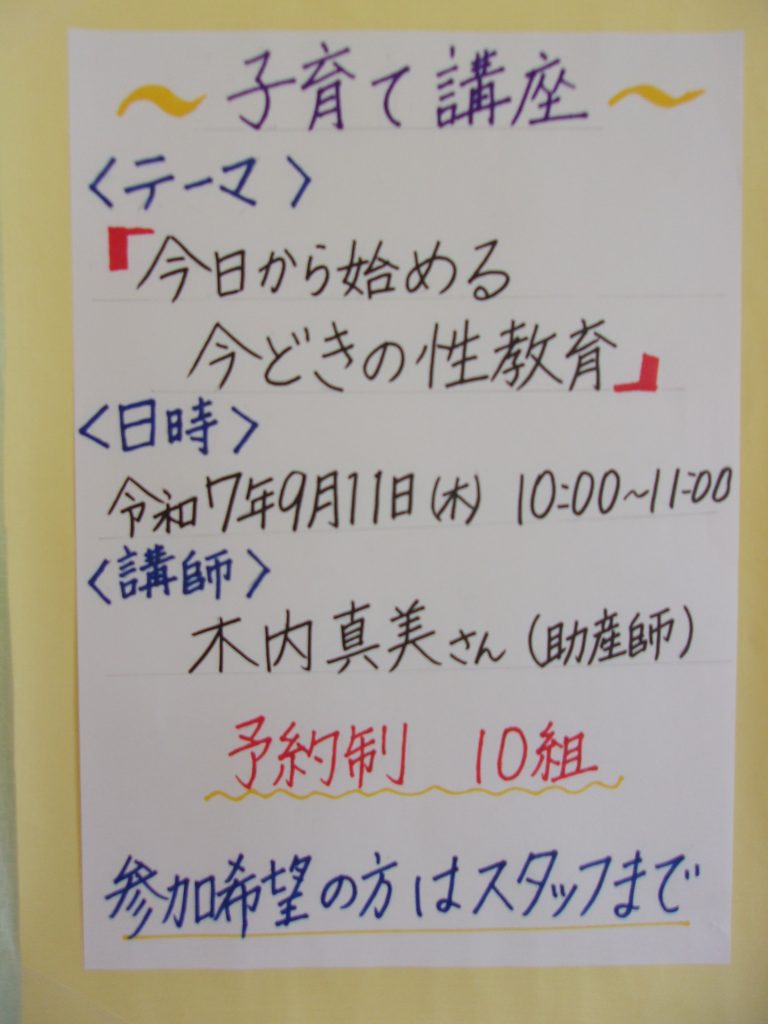 ～子育て講座～
〈テーマ〉
『今日から始める
今どきの性教育』
〈日時〉
令和7年9月11日(木) 10:00~11:00
〈講師〉
木内真美さん(助産師)
予約制 10組
参加希望の方はスタッフまで